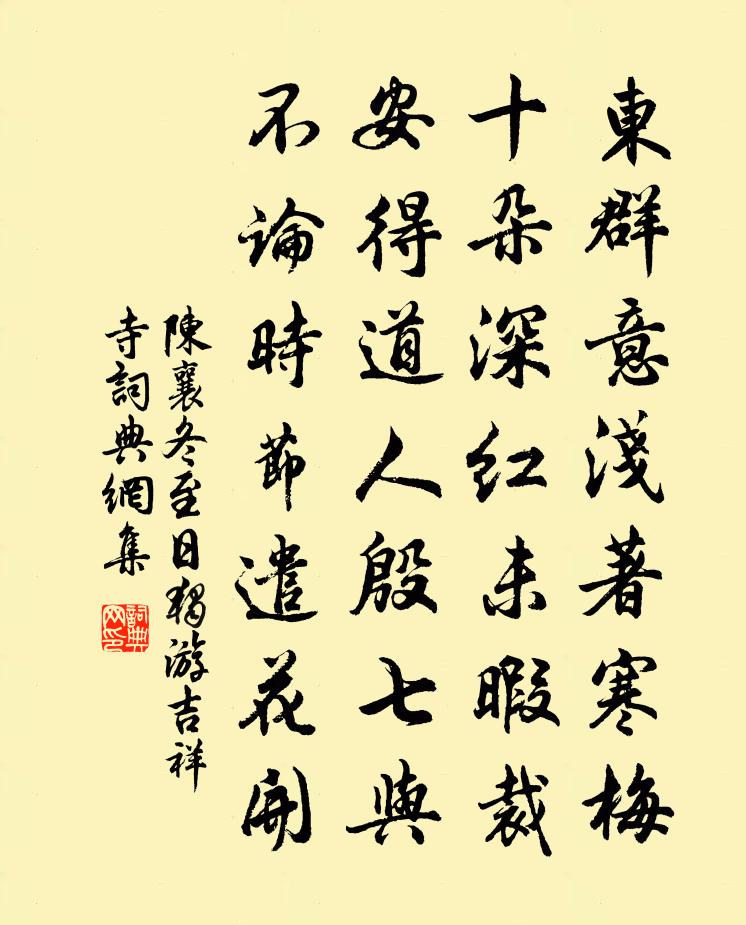 東群意淺著寒梅
十朵深紅未暇裁
安得道人殷七與
不論時節遣花開
陳襄冬至日獨游吉祥
寺詞典網集
詞典
网印